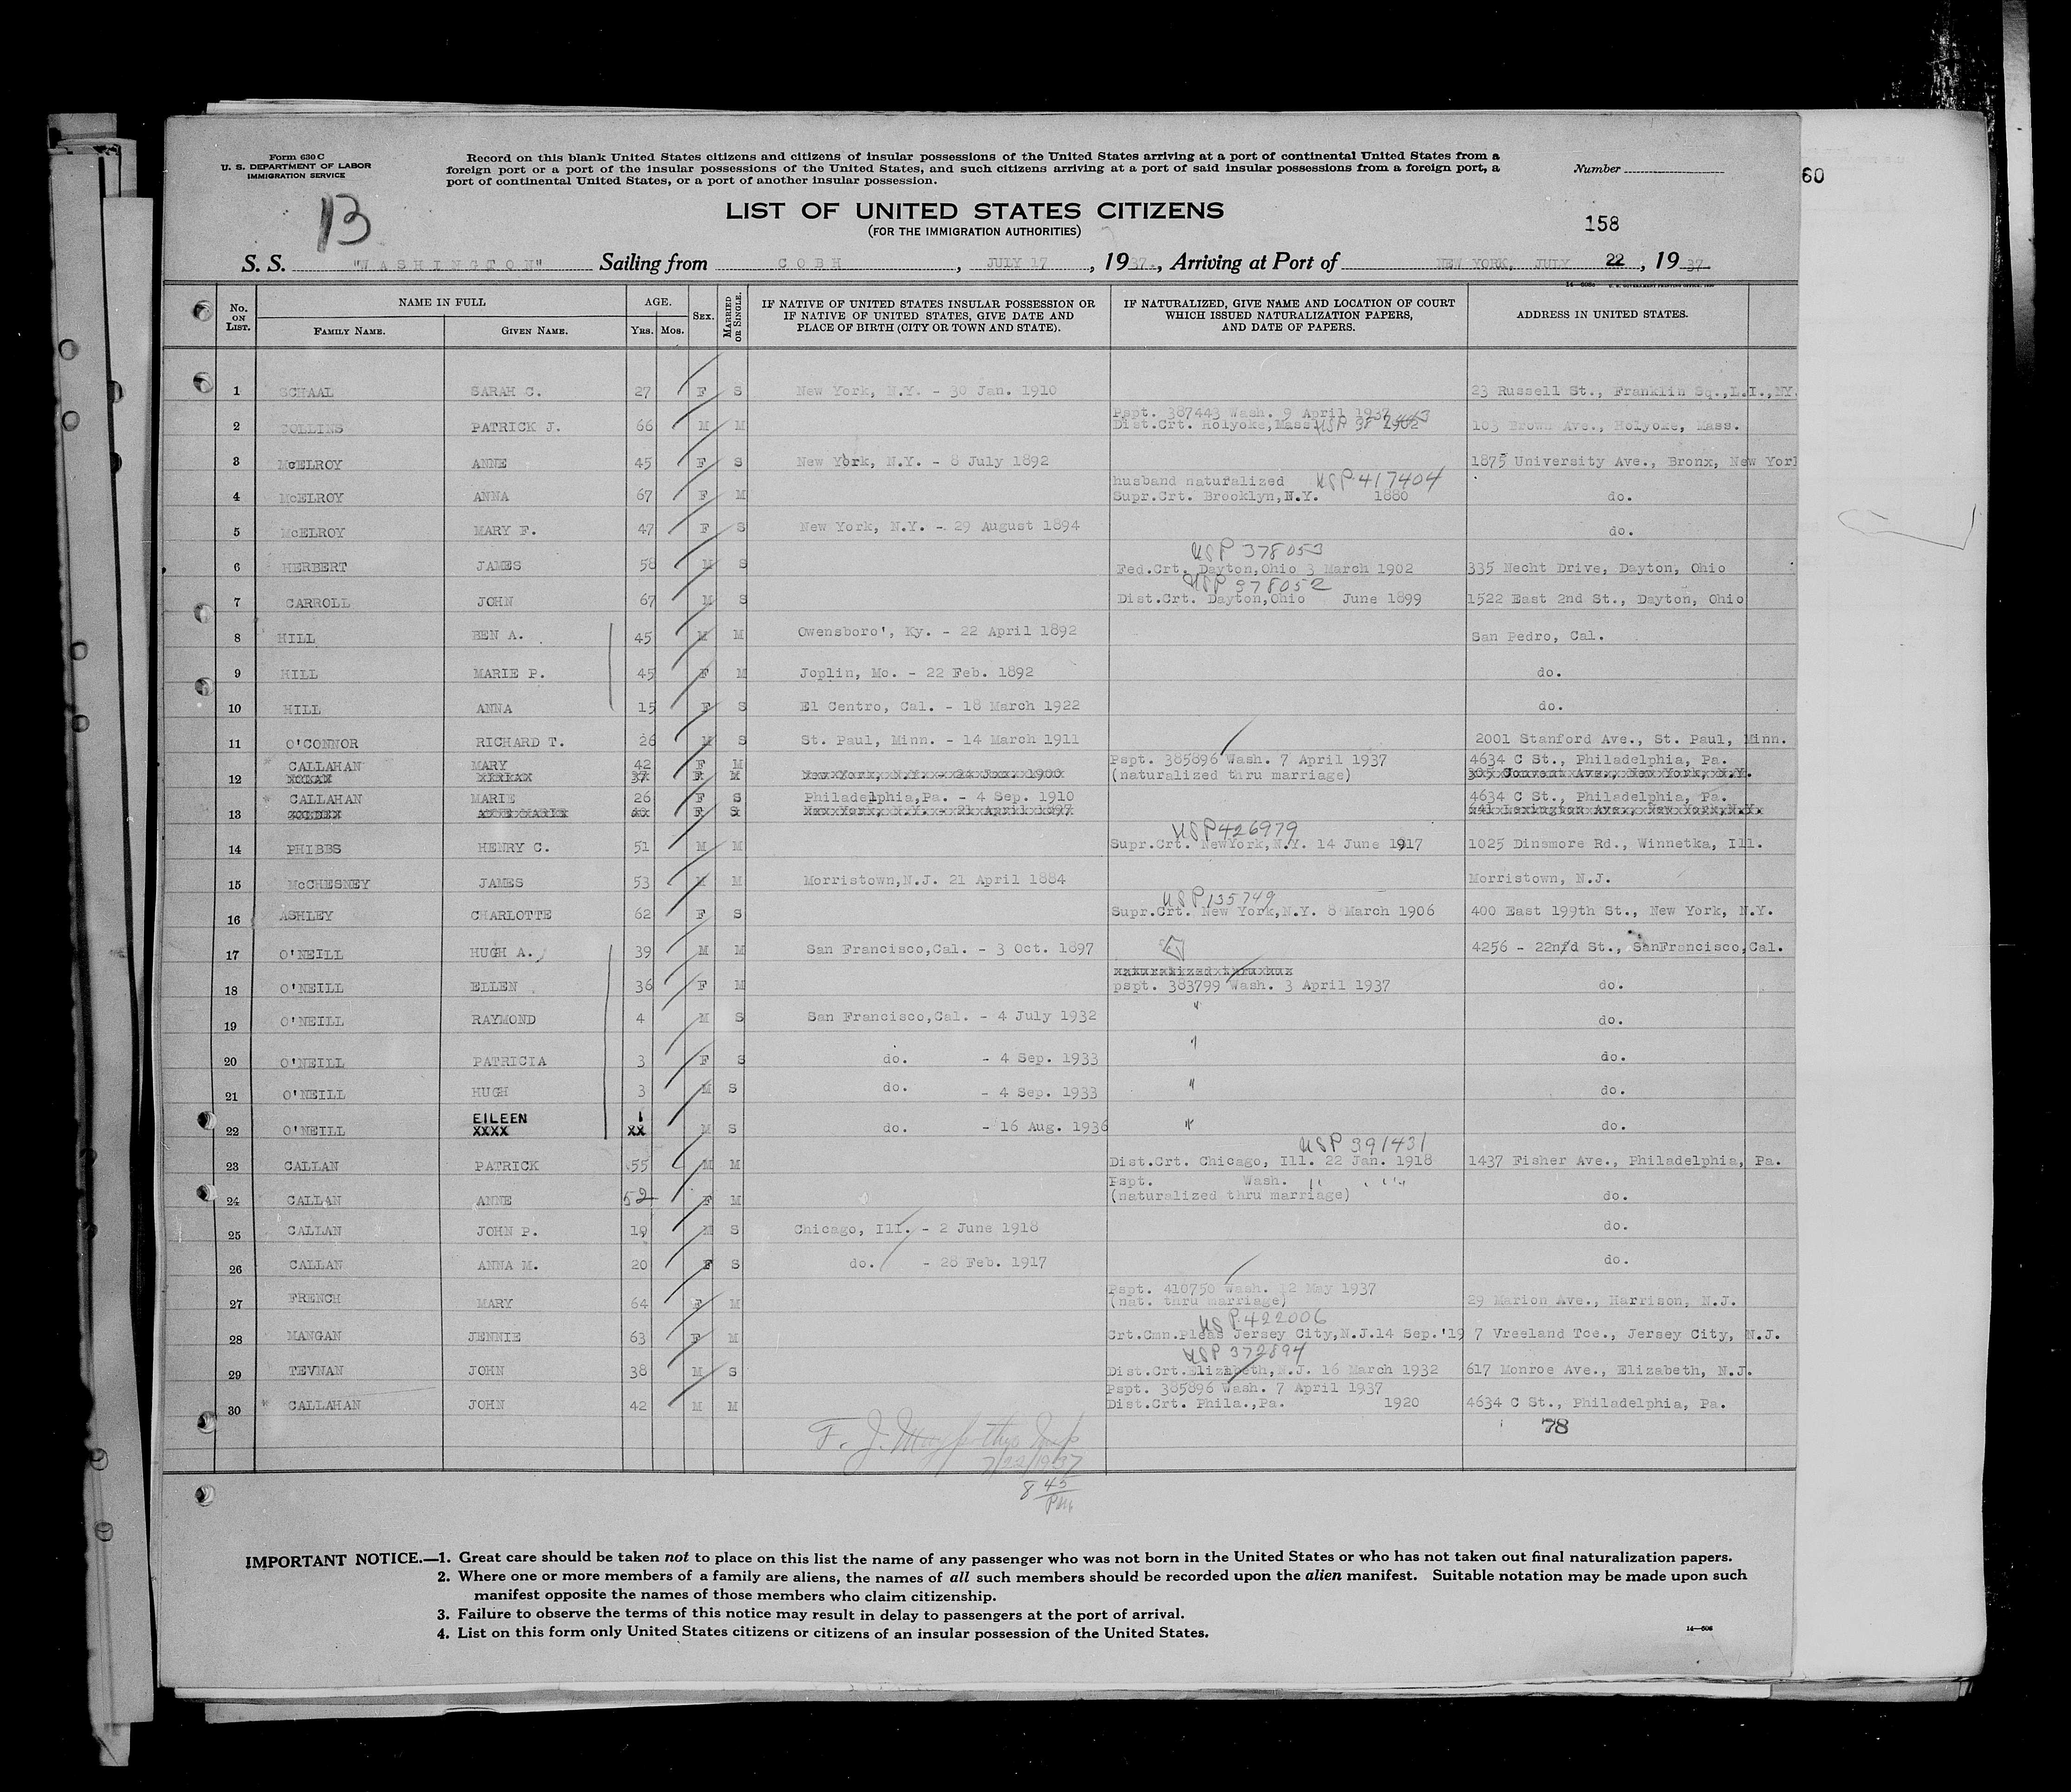 Form 630 C
U. S. DEPARTMENT OF LABOR
IMMIGRATION SERVICE
Record on this blank United States citizens and citizens of insular possessions of the United States arriving at a port of continental United States from a
foreign port or a port of the insular possessions of the United States, and such citizens arriving at a port of said insular possessions from a foreign port, a
port of continental United States, or a port of another insular possession.
Number
60
13
LIST OF UNITED STATES CITIZENS
(FOR THE IMMIGRATION AUTHORITIES)
158
S. S. "WASHINGTON" Sailing from COBH, JULY 17, 1937., Arriving at Port of NEW YORK, JULY 22, 1937.
No. ON LIST. NAME IN FULL FAMILY NAME. GIVEN NAME. AGE. YRS. MOS. SEX. MARRIED OR SINGLE. IF NATIVE OF UNITED STATES INSULAR POSSESSION OR IF NATIVE OF UNITED STATES, GIVE DATE AND PLACE OF BIRTH (CITY OR TOWN AND STATE). IF NATURALIZED, GIVE NAME AND LOCATION OF COURT WHICH ISSUED NATURALIZATION PAPERS, AND DATE OF PAPERS. ADDRESS IN UNITED STATES.
1 SCHAAL SARAH C. 27 F S New York, N.Y. - 30 Jan. 1910 23 Russell St., Franklin Sq.,L.I.,NY.
Pspt. 387443 Wash. 9 April 1937
2 COLLINS PATRICK J. 66 M M Dist.Crt. Holyoke,Mass. 1902 103 Brown Ave., Holyoke, Mass.
3 McELROY ANNE 45 F S New York, N.Y. - 8 July 1892 1875 University Ave., Bronx, New York
husband naturalized USP 417404
4 McELROY ANNA 67 F M Supr.Crt. Brooklyn,N.Y. 1880 do.
5 McELROY MARY F. 47 F S New York, N.Y. - 29 August 1894 do.
USP 378053
6 HERBERT JAMES 58 M S Fed.Crt. Dayton,Ohio 3 March 1902 335 Hecht Drive, Dayton, Ohio
USP 378052
7 CARROLL JOHN 67 M S Dist.Crt. Dayton,Ohio June 1899 1522 East 2nd St., Dayton, Ohio
8 HILL BEN A. 45 M M Owensboro', Ky. - 22 April 1892 San Pedro, Cal.
9 HILL MARIE P. 45 F M Joplin, Mo. - 22 Feb. 1892 do.
10 HILL ANNA 15 F S El Centro, Cal. - 18 March 1922 do.
11 O'CONNOR RICHARD T. 26 M S St. Paul, Minn. - 14 March 1911 2001 Stanford Ave., St. Paul, Minn.
CALLAHAN MARY 42 F M Pspt. 385896 Wash. 7 April 1937 4634 C St., Philadelphia, Pa.
12 (naturalized thru marriage)
CALLAHAN MARIE 26 F S Philadelphia,Pa. - 4 Sep. 1910 4634 C St., Philadelphia, Pa.
13
USP 426979
14 PHIBBS HENRY C. 51 M M Supr.Crt. NewYork,N.Y. 14 June 1917 1025 Dinsmore Rd., Winnetka, Ill.
15 McCHESNEY JAMES 53 M M Morristown,N.J. 21 April 1884 Morristown, N.J.
USP 135749
16 ASHLEY CHARLOTTE 62 F S Supr.Crt. New York,N.Y. 8 March 1906 400 East 199th St., New York, N.Y.
17 O'NEILL HUGH A. 39 M M San Francisco,Cal. - 3 Oct. 1897 4256 - 22nd St., SanFrancisco,Cal.
18 O'NEILL ELLEN 36 F M pspt. 383799 Wash. 3 April 1937 do.
19 O'NEILL RAYMOND 4 M S San Francisco,Cal. - 4 July 1932 " do.
20 O'NEILL PATRICIA 3 F S do. - 4 Sep. 1933 " do.
21 O'NEILL HUGH 3 M S do. - 4 Sep. 1933 " do.
EILEEN 1
22 O'NEILL XXXX XX M S do. - 16 Aug. 1936 " do.
USP 391431
23 CALLAN PATRICK 55 M M Dist.Crt. Chicago, Ill. 22 Jan. 1918 1437 Fisher Ave., Philadelphia, Pa.
Pspt. Wash. " "
24 CALLAN ANNE 52 F M (naturalized thru marriage) do.
25 CALLAN JOHN P. 19 M S Chicago, Ill. - 2 June 1918 do.
26 CALLAN ANNA M. 20 F S do. - 28 Feb. 1917 do.
Pspt. 410750 Wash. 12 May 1937
27 FRENCH MARY 64 F M (nat. thru marriage) 29 Marion Ave., Harrison, N.J.
USP 422006
28 MANGAN JENNIE 63 F M Crt.Cmn.Pleas Jersey City,N.J.14 Sep.'19 7 Vreeland Tce., Jersey City, N.J.
USP 372894
29 TEVNAN JOHN 38 M S Dist.Crt.Elizabeth,N.J. 16 March 1932 617 Monroe Ave., Elizabeth, N.J.
Pspt. 385896 Wash. 7 April 1937
30 * CALLAHAN JOHN 42 M M Dist.Crt. Phila.,Pa. 1920 4634 C St., Philadelphia, Pa.
78
F. J.
7/22/1937
8 45 PM
IMPORTANT NOTICE.—1. Great care should be taken not to place on this list the name of any passenger who was not born in the United States or who has not taken out final naturalization papers.
2. Where one or more members of a family are aliens, the names of all such members should be recorded upon the alien manifest. Suitable notation may be made upon such
manifest opposite the names of those members who claim citizenship.
3. Failure to observe the terms of this notice may result in delay to passengers at the port of arrival.
4. List on this form only United States citizens or citizens of an insular possession of the United States.
14—606